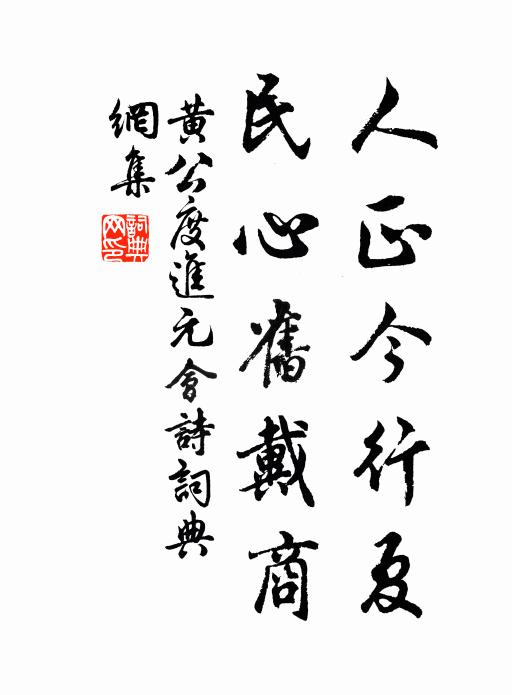 人正今行夏
民心舊戴商
黃公度進元會詩詞典
網集
詞典網印